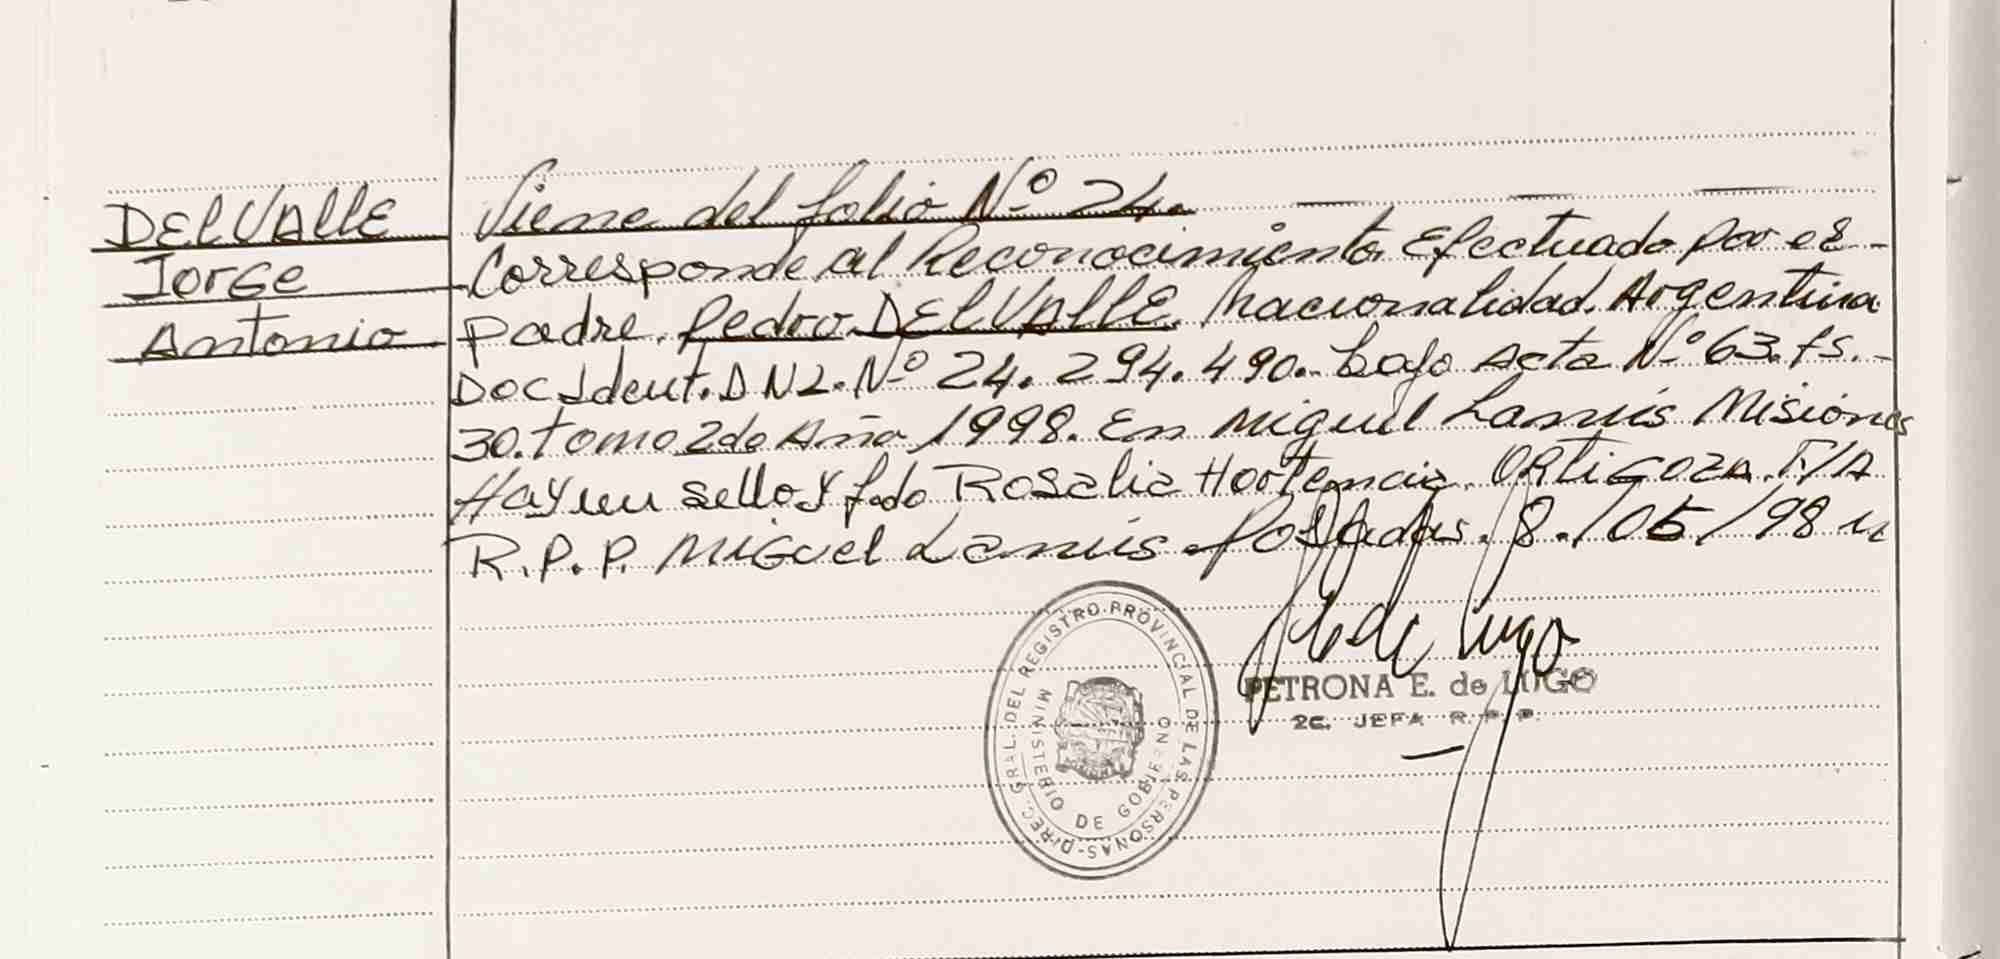 DELVALLE
Jorge
Antonio
Viene del folio Nº 24.
Corresponde al Reconocimiento Efectuado por el -
padre. Pedro DELVALLE. Nacionalidad. Argentina
Doc Ident. DNI. Nº 24.294.490. bajo Acta Nº 63. fs.-
30. tomo 2do Año 1998. En Miguel Lanús Misiones
Hay un sello y fdo Rosalia Hortencia. ORTIGOZA. T/A
R.P.P. Miguel Lanús Posadas. 8./05/98
DIREC. GRAL. DEL REGISTRO PROVINCIAL DE LAS PERSONAS-
MINISTERIO DE GOBIERNO
de Lugo
PETRONA E. de LUGO
2C. JEFA R.P.P.